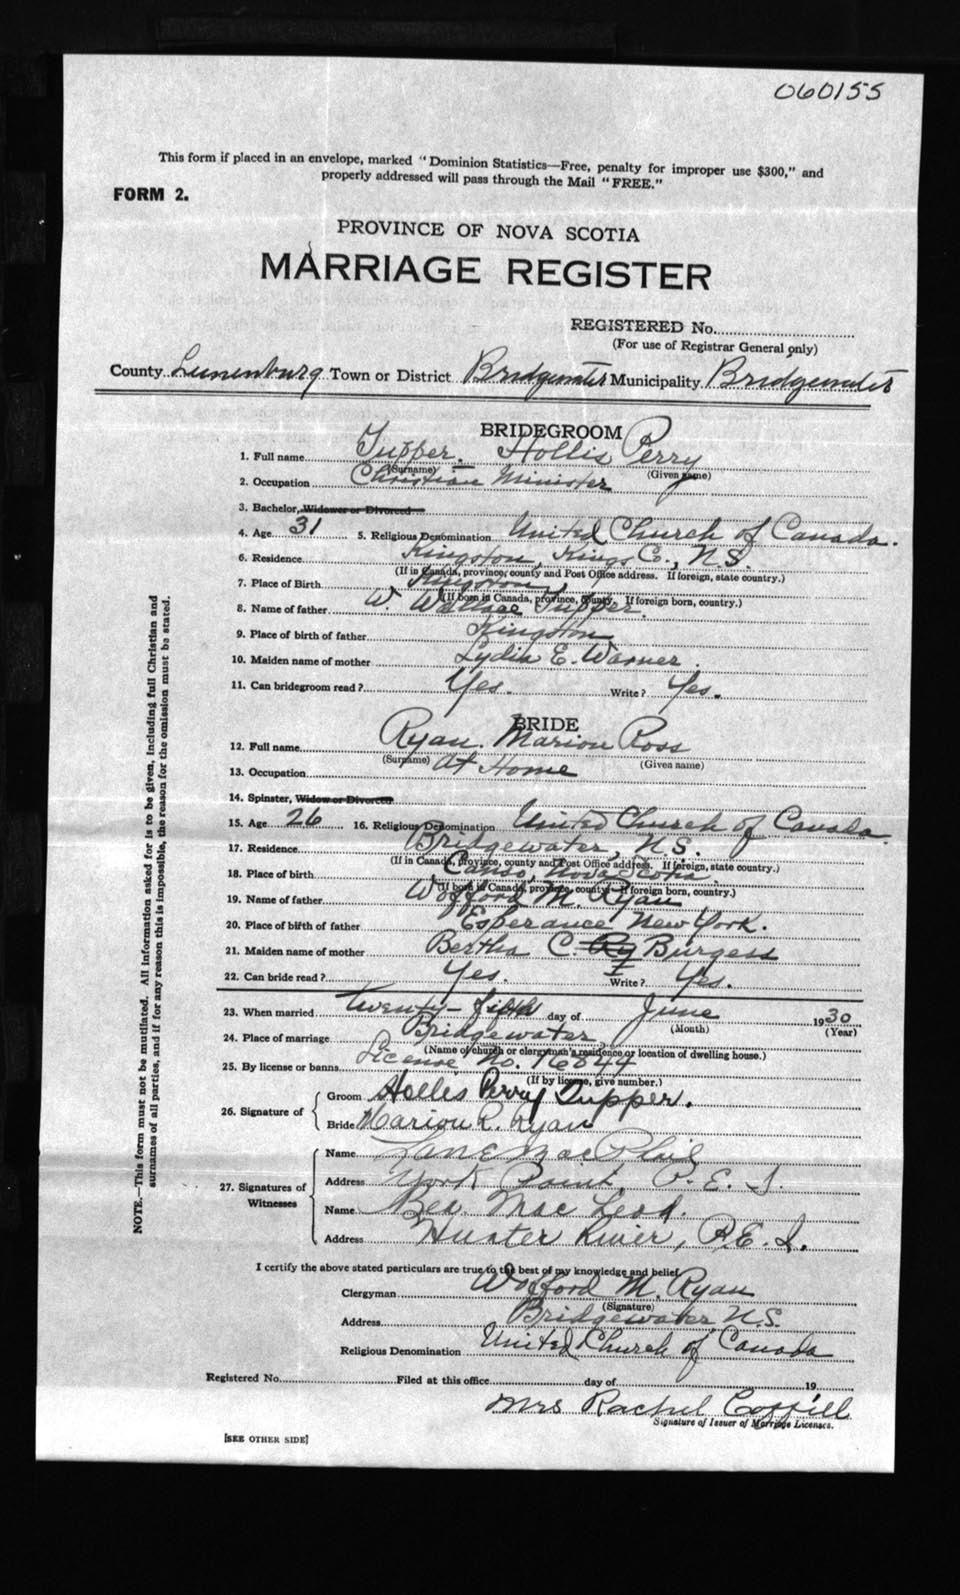 060155
This form if placed in an envelope, marked "Dominion Statistics—Free, penalty for improper use $300," and
properly addressed will pass through the Mail "FREE."
FORM 2.
PROVINCE OF NOVA SCOTIA
MARRIAGE REGISTER
REGISTERED No.
(For use of Registrar General only)
County Lunenburg Town or District Bridgewater Municipality Bridgewater
BRIDEGROOM
1. Full name Tupper. Hollis Perry
(Surname) (Given name)
2. Occupation Christian Minister
3. Bachelor, Widower or Divorced
4. Age 31 5. Religious Denomination United Church of Canada.
6. Residence Kingston, Kings Co., N.S.
(If in Canada, province, county and Post Office address. If foreign, state country.)
7. Place of Birth Kingston
(If born in Canada, province, county. If foreign born, country.)
8. Name of father W. Wallace Tupper.
9. Place of birth of father Kingston
10. Maiden name of mother Lydia E. Warner.
11. Can bridegroom read? Yes. Write? Yes.
BRIDE
12. Full name Ryan. Marion Ross
(Surname) (Given name)
13. Occupation At Home
14. Spinster, Widow or Divorced
15. Age 26 16. Religious Denomination United Church of Canada
17. Residence Bridgewater, N.S.
(If in Canada, province, county and Post Office address. If foreign, state country.)
18. Place of birth Canso, Nova Scotia
(If born in Canada, province, county. If foreign born, country.)
19. Name of father Wofford M. Ryan
20. Place of birth of father Esperance New York.
21. Maiden name of mother Bertha C. Ry Burgess
22. Can bride read? Yes. Write? Yes.
23. When married twenty-fifth day of June 1930
(Month) (Year)
24. Place of marriage Bridgewater
(Name of church or clergyman's residence or location of dwelling house.)
25. By license or banns License No. 16844
(If by license, give number.)
26. Signature of
Groom Hollis Perry Tupper.
Bride Marion R. Ryan
27. Signatures of Witnesses
Name MacPhail
Address York Point, P.E.I.
Name Bea. MacLeod.
Address Hunter River, P.E.I.
I certify the above stated particulars are true to the best of my knowledge and belief
Clergyman Wofford M. Ryan
(Signature)
Address Bridgewater, N.S.
Religious Denomination United Church of Canada
Registered No. Filed at this office day of 19
Mrs Rachel
Signature of Issuer of Marriage Licenses.
[SEE OTHER SIDE]
NOTE.—This form must not be mutilated. All information asked for is to be given, including full Christian and
surnames of all parties, and if for any reason this is impossible, the reason for the omission must be stated.